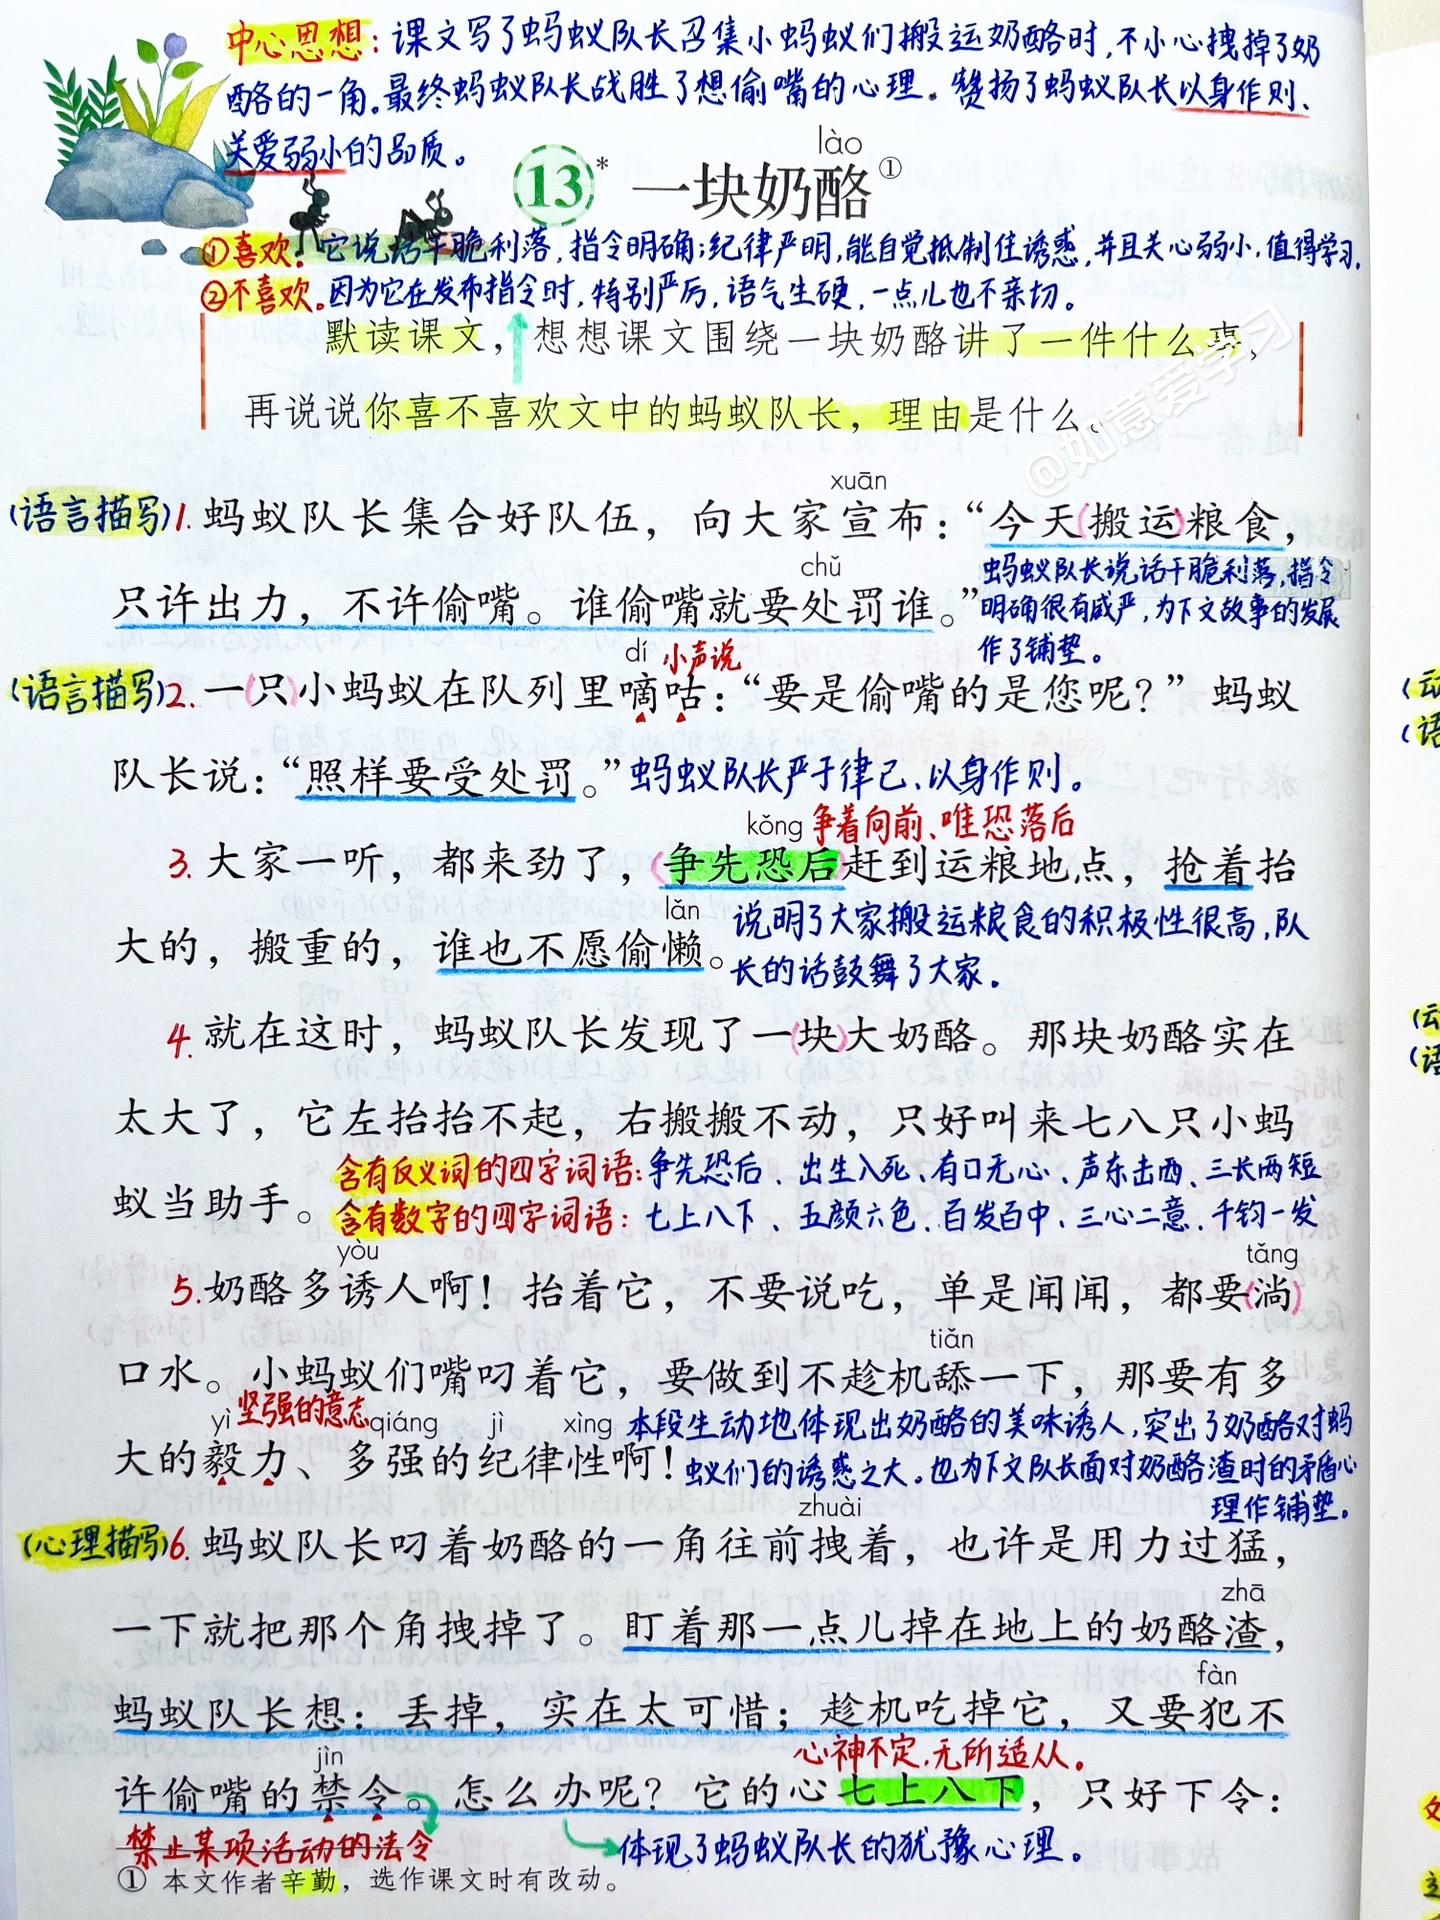 中心思想：课文写了蚂蚁队长召集小蚂蚁们搬运奶酪时，不小心拽掉了奶
酪的一角。最终蚂蚁队长战胜了想偷嘴的心理。赞扬了蚂蚁队长以身作则、
关爱弱小的品质。
lào
13* 一块奶酪①
①喜欢：它说话干脆利落，指令明确；纪律严明，能自觉抵制住诱惑，并且关心弱小，值得学习。
②不喜欢。因为它在发布指令时，特别严厉，语气生硬，一点儿也不亲切。
默读课文，想想课文围绕一块奶酪讲了一件什么事，
再说说你喜不喜欢文中的蚂蚁队长，理由是什么。
@如意爱学习
xuān
(语言描写)1.蚂蚁队长集合好队伍，向大家宣布：“今天(搬运)粮食，
chǔ
只许出力，不许偷嘴。谁偷嘴就要处罚谁。”
蚂蚁队长说话干脆利落，指令
明确很有威严，为下文故事的发展
作了铺垫。
dí 小声说
(语言描写)2.一(只)小蚂蚁在队列里嘀咕：“要是偷嘴的是您呢？”蚂蚁
队长说：“照样要受处罚。”蚂蚁队长严于律己、以身作则。
kǒng 争着向前、唯恐落后
3.大家一听，都来劲了，(争先恐后)赶到运粮地点，抢着抬
lǎn
大的，搬重的，谁也不愿偷懒。
说明了大家搬运粮食的积极性很高，队
长的话鼓舞了大家.
4.就在这时，蚂蚁队长发现了一(块)大奶酪。那块奶酪实在
太大了，它左抬抬不起，右搬搬不动，只好叫来七八只小蚂
蚁当助手。
含有反义词的四字词语：争先恐后、出生入死、有口无心、声东击西、三长两短
含有数字的四字词语：七上八下、五颜六色、百发百中、三心二意、千钧一发
yòu tǎng
5.奶酪多诱人啊！抬着它，不要说吃，单是闻闻，都要(淌)
tiǎn
口水。小蚂蚁们嘴叼着它，要做到不趁机舔一下，那要有多
yì 坚强的意志 qiáng jì xìng
大的毅力、多强的纪律性啊！
本段生动地体现出奶酪的美味诱人，突出了奶酪对蚂
蚁们的诱惑之大。也为下文队长面对奶酪渣时的矛盾心
理作铺垫。
zhuài
(心理描写)6.蚂蚁队长叼着奶酪的一角往前拽着，也许是用力过猛，
zhā
一下就把那个角拽掉了。盯着那一点儿掉在地上的奶酪渣，
fàn
蚂蚁队长想：丢掉，实在太可惜；趁机吃掉它，又要犯不
jìn 心神不定，无所适从。
许偷嘴的禁令。怎么办呢？它的心七上八下，只好下令：
禁止某项活动的法令
体现了蚂蚁队长的犹豫心理。
① 本文作者辛勤，选作课文时有改动。